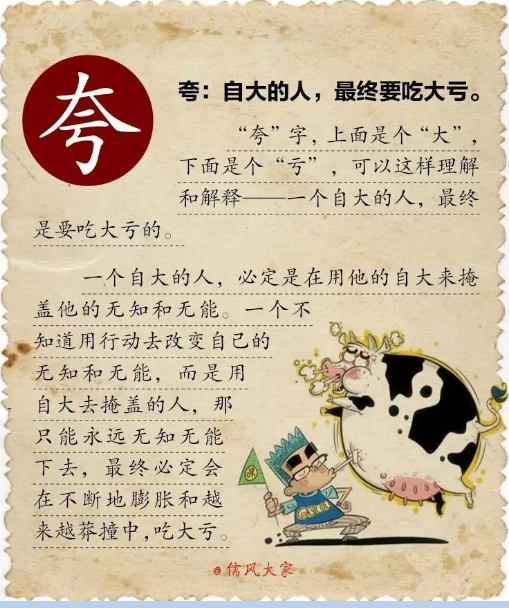 夸
夸：自大的人，最终要吃大亏。
“夸”字，上面是个“大”，
下面是个“亏”，可以这样理解
和解释——一个自大的人，最终
是要吃大亏的。
一个自大的人，必定是在用他的自大来掩
盖他的无知和无能。一个不
知道用行动去改变自己的
无知和无能，而是用
自大去掩盖的人，那
只能永远无知无能
下去，最终必定会
在不断地膨胀和越
来越莽撞中,吃大亏。
儒风大家